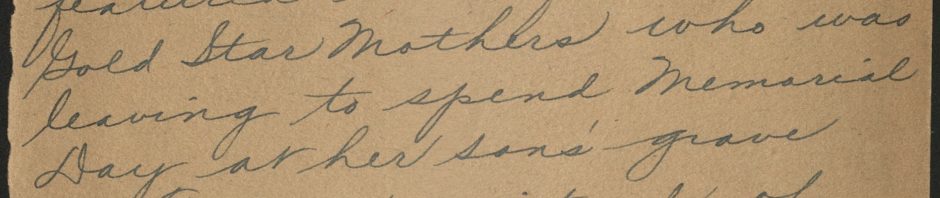 featured
Gold Star Mothers who was
leaving to spend Memorial
Day at her son's grave
of